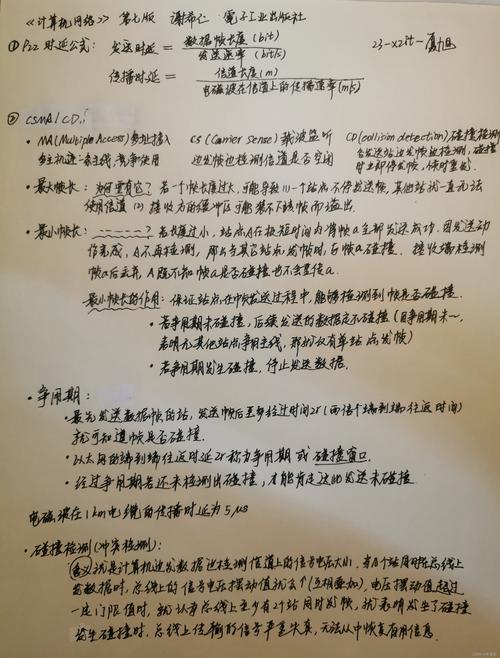 《计算机网络》 第七版 谢希仁 電子工业出版社
① P22 时延公式: 发送时延 = 数据帧长度(bit) / 发送速率(bit/s)
传播时延 = 信道长度(m) / 电磁波在信道上的传播速率(m/s)
② CSMA/CD:
· MA(Multiple Access)多址接入 CS(Carrier Sense)载波监听 CD(collision detection)碰撞检测
多主机连一条主线,竞争使用 边发帧边检测信道是否空闲 各发送站边发帧边检测,碰撞
立即停发帧,
· 最大帧长: 为何要有它? 若一个帧长过大,可能导致(1)一个站点不停发送帧,其他站就一直无法
使用信道 (2) 接收方的缓冲区可能装不下该帧而溢出.
· 最小帧长: ? 若长过小,站点A在极短时间内将帧a全部发送成功.因发送动
作完成,A不再检测,那么与其它站点发帧时,与帧a碰撞. 接收端检测
帧a后丢弃,A既不知帧a是否碰撞也不会重传a.
最小帧长的作用: 保证站点在中帧发送过程中,能够检测到帧是否碰撞.
· 若争用期未碰撞,后续发送的数据定不碰撞(因争用期未~,
表明无其他站点争用主线,那么仅有单站点发帧)
· 若争用期发生碰撞,停止发送数据.
· 争用期:
· 最先发送数据帧的站,发送帧后至多经过时间2τ(两倍个端到端往返时间)
就可知道帧是否碰撞.
· 以太网的端到端往返时延2τ称为争用期 或 碰撞窗口.
· 经过争用期若还未检测出碰撞,才能肯定这次发送未碰撞.
电磁波在1km电缆的传播时延为5μs
· 碰撞检测(冲突检测):
就是计算机边发数据边检测信道上的信号电压大小.若几个站同时在总线上
发数据时,总线上的信号电压摆动值就会↑(互相叠加),电压摆动值超过
一定门限值时,就认为总线上至少有2个站同时发帧,就表明发生了碰撞
发生碰撞时,总线上传输的信号严重失真,无法从中恢复有用信息.